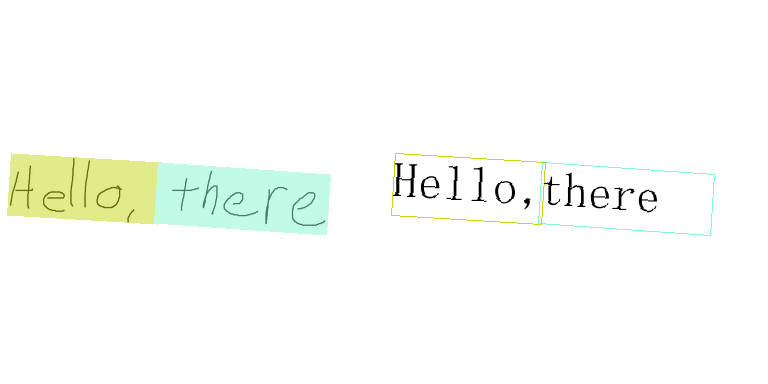 Hello, there Hello, there